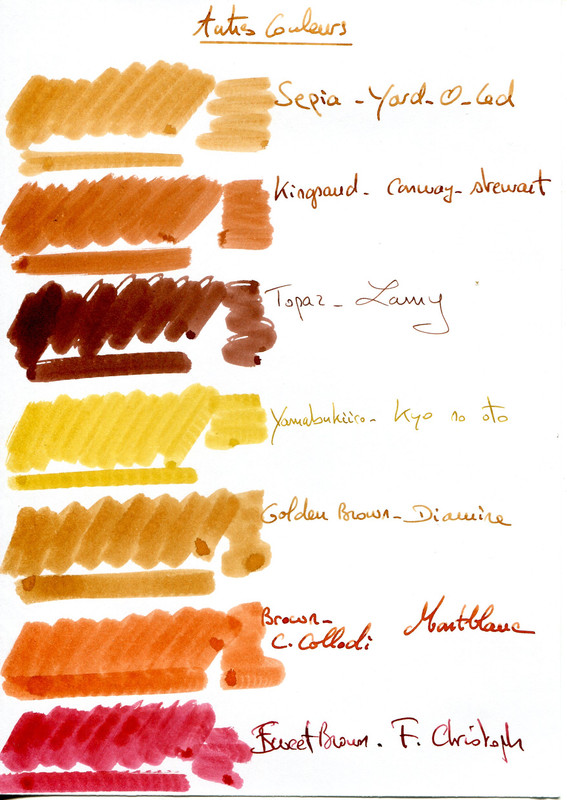 Autres Couleurs
Sepia - Yard-O-Led
Kingsand - Conway-Stewart
Topaz - Lamy
Yamabukiiro - Kyo no oto
Golden Brown - Diamine
Brown - Montblanc
C. Collodi
Sweet Brown. F. Christoph